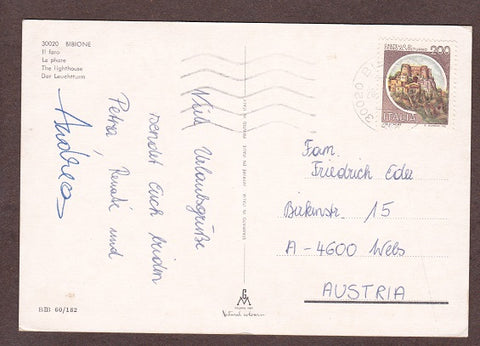 30020 BIBIONE
Il faro
Le phare
The lighthouse
Der Leuchtturm
Viele Urlaubsgrüße
sendet Euch beiden
Petra, Renate und
Andrea
Fam.
Friedrich Eder
Birkenstr. 15
A-4600 Wels
AUSTRIA
200
ITALIA
30020 BI
BIB 60/182